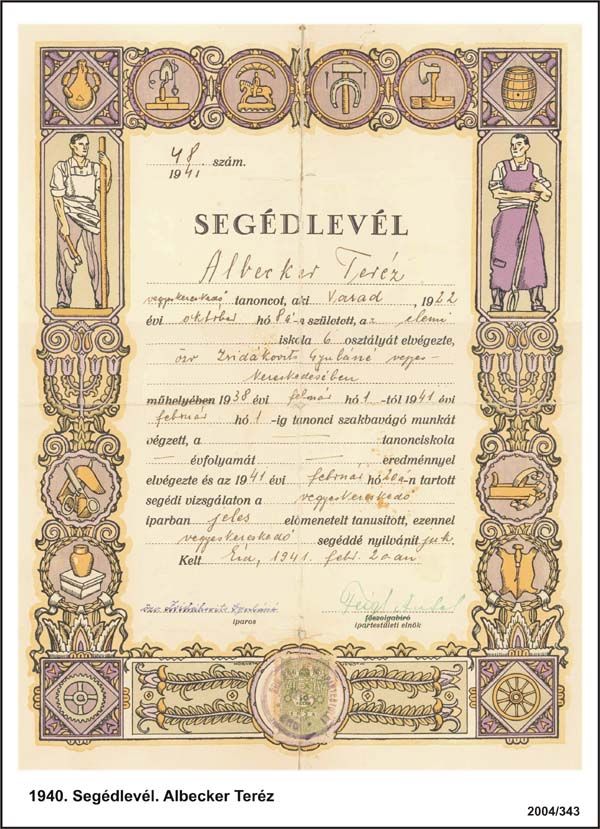 48
1941 szám.
SEGÉDLEVÉL
Albecker Teréz
vegyeskereskedő tanoncot, aki Varad, 1922
évi október hó 8á-n született, az elemi
iskola 6 osztályát elvégezte,
özv Zsidákovits Gyuláné vegyes-
kereskedésében
műhelyében 1938 évi február hó 1-tól 1941 évi
február hó 1-ig tanonci szakbavágó munkát
végzett, a — tanonciskola
— évfolyamát — eredménnyel
elvégezte és az 1941 évi február hó 20án tartott
segédi vizsgálaton a vegyeskereskedő
iparban jeles előmenetelt tanusított, ezennel
vegyeskereskedő segéddé nyilvánítjuk.
Kelt Érd, 1941. febr. 20án
özv. Zsidákovits Gyuláné
iparos
főszolgabíró
ipartestületi elnök
1940. Segédlevél. Albecker Teréz
2004/343